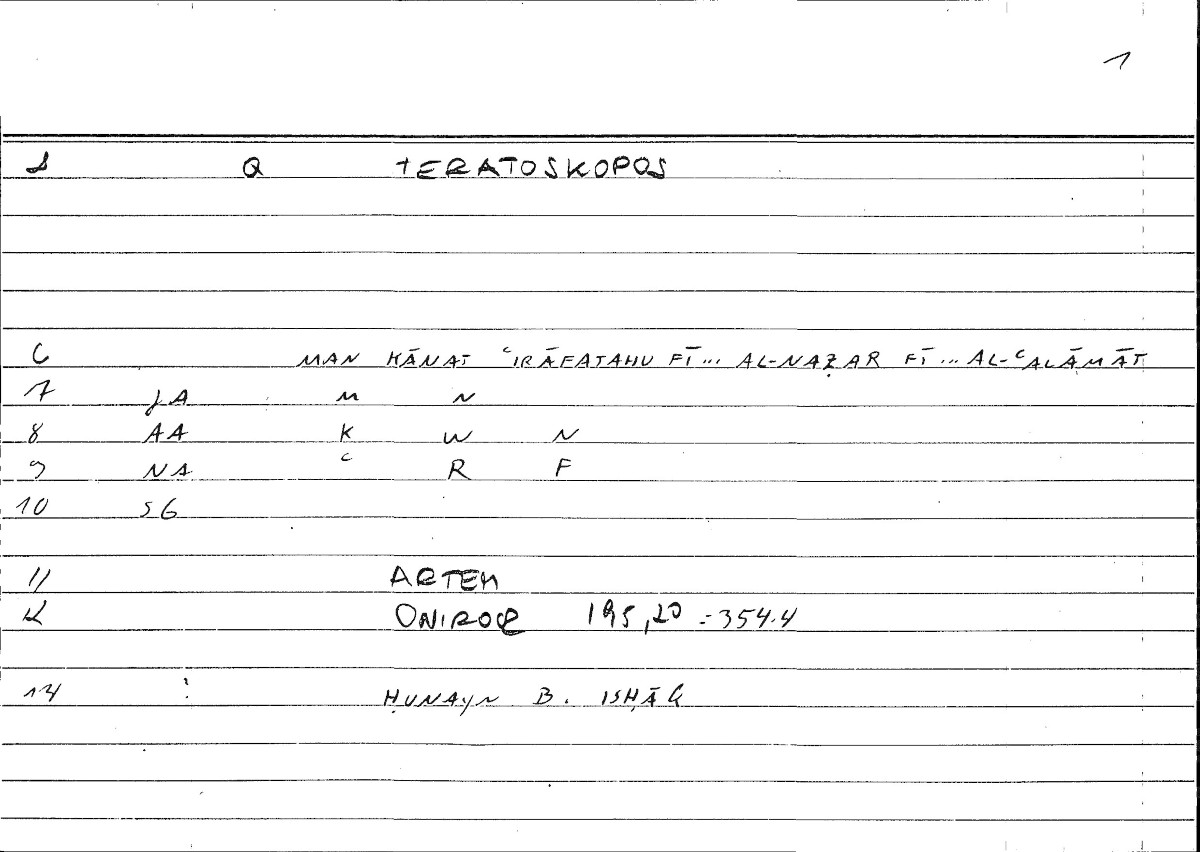 1
1 Q TERATOSKOPOS
6 MAN KĀNAT ʿIRĀFATAHU FĪ... AL-NAẒAR FĪ... AL-ʿALĀMĀT
7 JA M N
8 AA K W N
9 NA ʿ R F
10 SG
11 ARTEM
12 ONIROCR 195,20 = 354.4
14 : ḤUNAYN B. ISḤĀQ